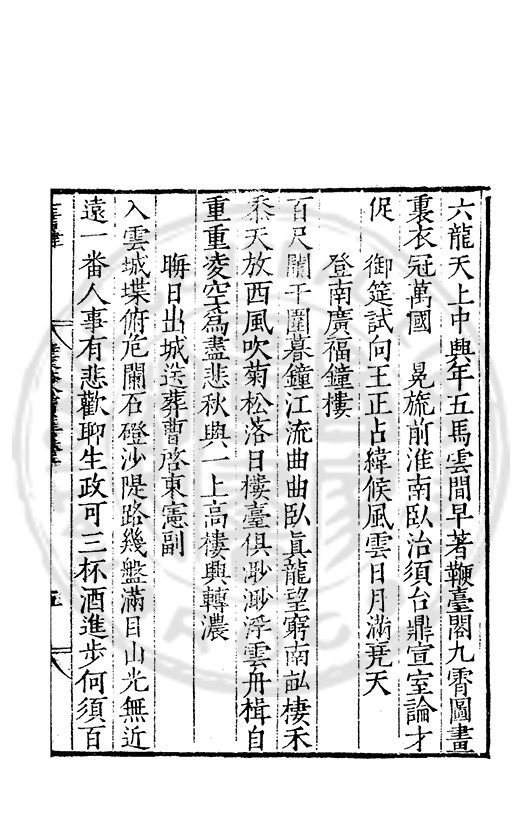 六龍天上中興年五馬雲間早著鞭臺閣九霄圖畫
裏衣冠萬國　晃旒前淮南臥治須台鼎宣室論才
促　御筵試向王正占緯候風雲日月滿堯天
登南廣福鐘樓
百尺闌干圍暮鐘江流曲曲臥眞龍望窮南畝棲禾
黍天放西風吹菊松落日樓臺俱渺渺浮雲舟楫自
重重凌空爲盡悲秋興一上高樓興轉濃
晦日出城送葬曹啓東憲副
入雲城堞俯危闌石磴沙隄路幾盤滿目山光無近
遠一番人事有悲歡聊生政可三杯酒進步何須百
五